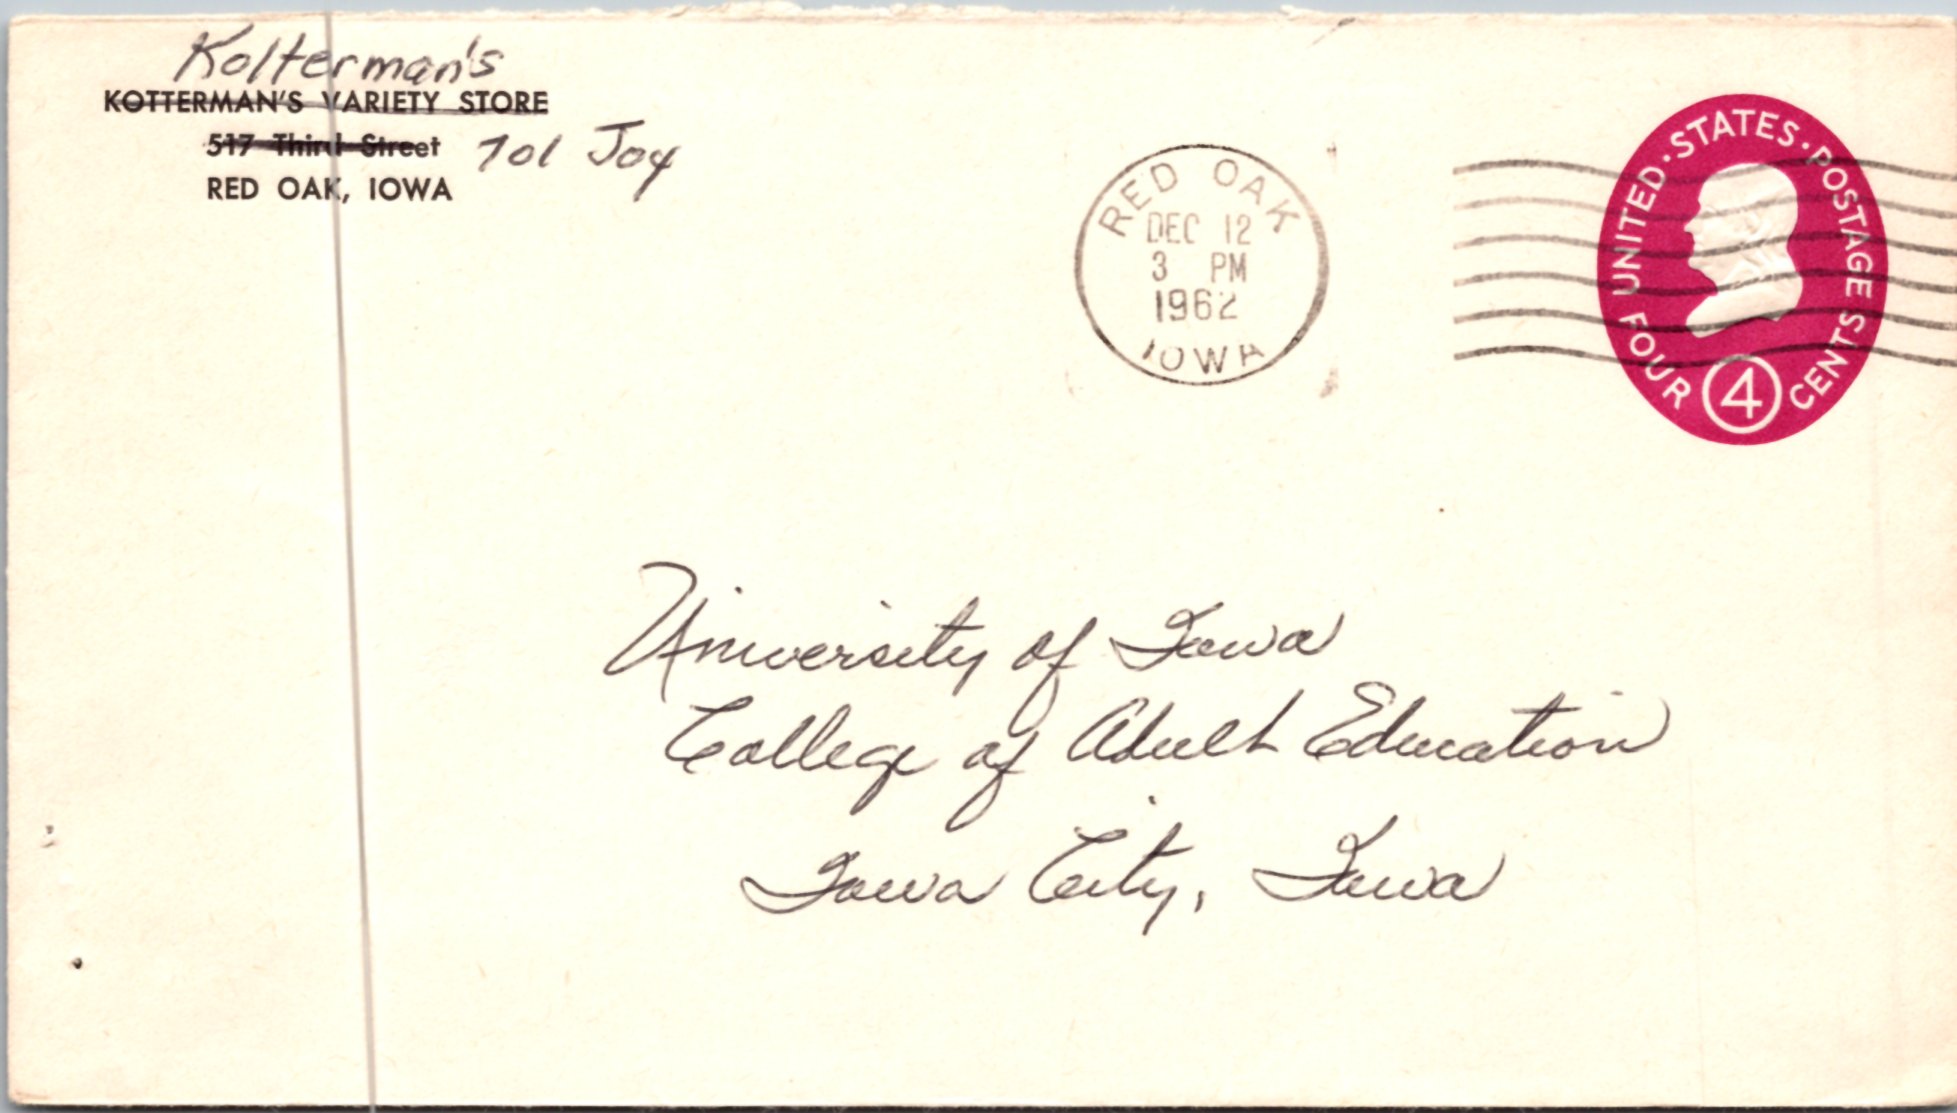 Kolterman's
KOTTERMAN'S VARIETY STORE
517 Third Street 701 Joy
RED OAK, IOWA
RED OAK
DEC 12
3 PM
1962
IOWA
UNITED·STATES·POSTAGE
FOUR 4 CENTS
University of Iowa
College of Adult Education
Iowa City, Iowa